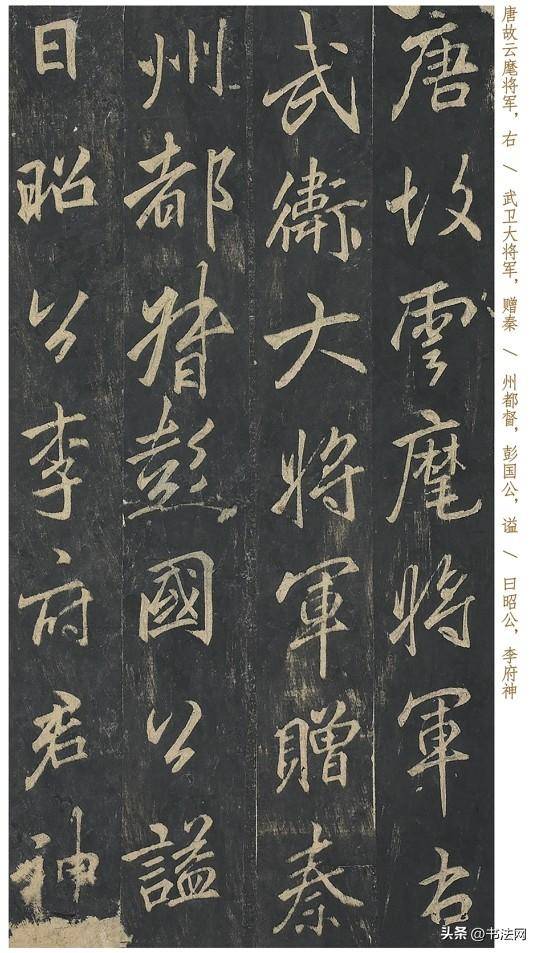 唐故云麾将军，右 / 武卫大将军，赠秦 / 州都督，彭国公，谥 / 曰昭公，李府神
唐故雲麾將軍右
武衛大將軍贈秦
州都督彭國公謚
曰昭公李府君神
头条 @书法网